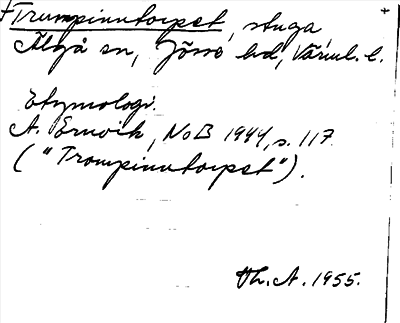 +Trumpinntorpet, stuga,
Älgå sn, Jösse hd, Värml. l.
Etymologi.
A. Ernvik, NoB 1944, s. 117.
("Trompinntorpet").
Vh. A. 1955.